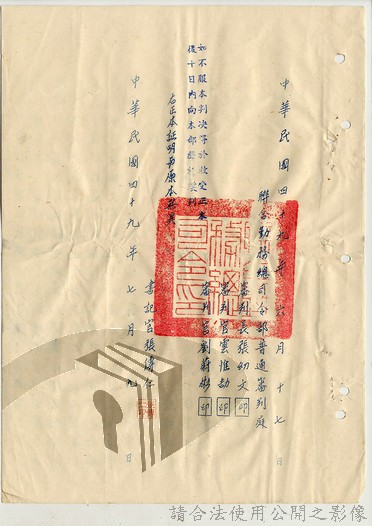 中華民國四十九年六月十七日
聯合勤務總司令部普通審判庭
審判長張幼文 印
審判官雲惟劭 印
審判官劉蔚彬 印
如不服本判決得於收受正本
後十日內向本部聲請覆判
右正本証明與原本無異
書記官張
中華民國四十九年七月九日
請合法使用公開之影像